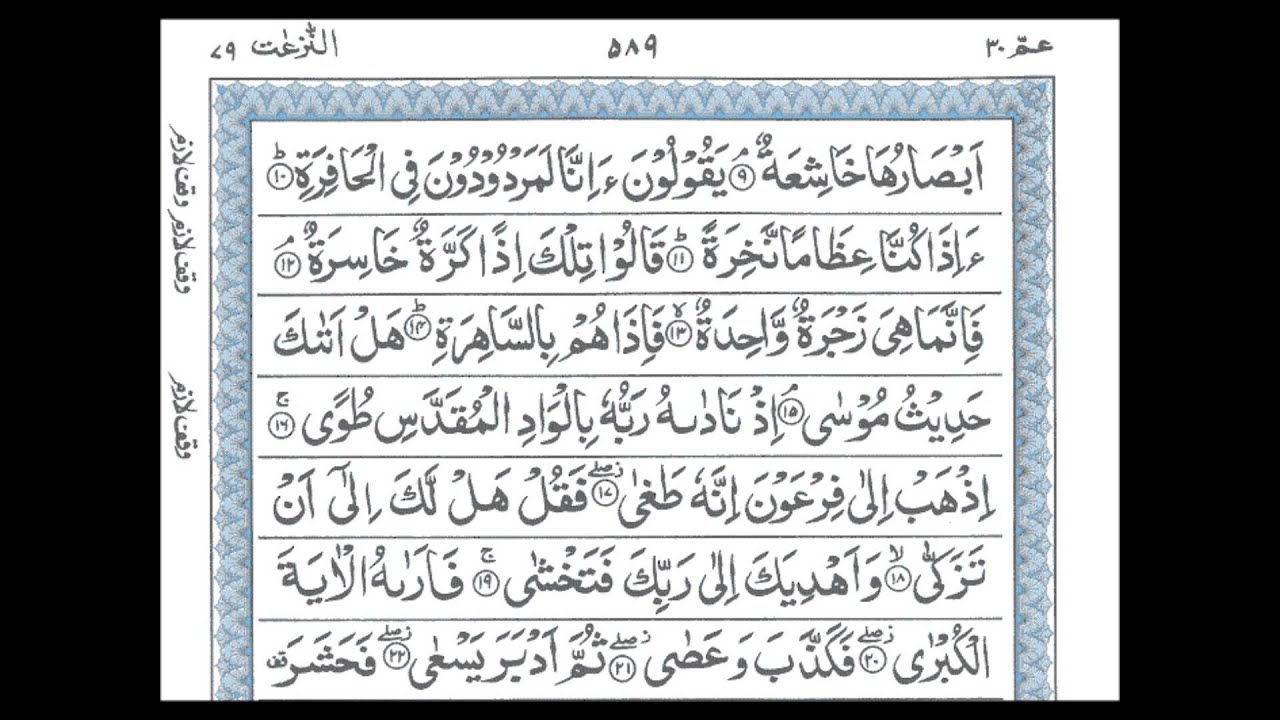 عـمّ ٣٠
٥٨٩
النّٰزعٰت ٧٩
اَبْصَارُهَا خَاشِعَةٌ ۘ﴿٩﴾ يَقُوْلُوْنَ ءَاِنَّا لَمَرْدُوْدُوْنَ فِى الْحَافِرَةِ ؕ﴿١٠﴾
ءَاِذَا كُنَّا عِظَامًا نَّخِرَةً ؕ﴿١١﴾ قَالُوْا تِلْكَ اِذًا كَرَّةٌ خَاسِرَةٌ ۘ﴿١٢﴾
فَاِنَّمَا هِىَ زَجْرَةٌ وَّاحِدَةٌ ۙ﴿١٣﴾ فَاِذَا هُمْ بِالسَّاهِرَةِ ؕ﴿١٤﴾ هَلْ اَتٰىكَ
حَدِيْثُ مُوْسٰى ۘ﴿١٥﴾ اِذْ نَادٰىهُ رَبُّهٗ بِالْوَادِ الْمُقَدَّسِ طُوًى ۚ﴿١٦﴾
اِذْهَبْ اِلٰى فِرْعَوْنَ اِنَّهٗ طَغٰى ۖ﴿١٧﴾ فَقُلْ هَلْ لَّكَ اِلٰٓى اَنْ
تَزَكّٰى ۙ﴿١٨﴾ وَاَهْدِيَكَ اِلٰى رَبِّكَ فَتَخْشٰى ۚ﴿١٩﴾ فَاَرٰىهُ الْاٰيَةَ
الْكُبْرٰى ۖ﴿٢٠﴾ فَكَذَّبَ وَعَصٰى ۖ﴿٢١﴾ ثُمَّ اَدْبَرَ يَسْعٰى ۖ﴿٢٢﴾ فَحَشَرَ قف
وقف لازم
وقف لازم
وقف لازم